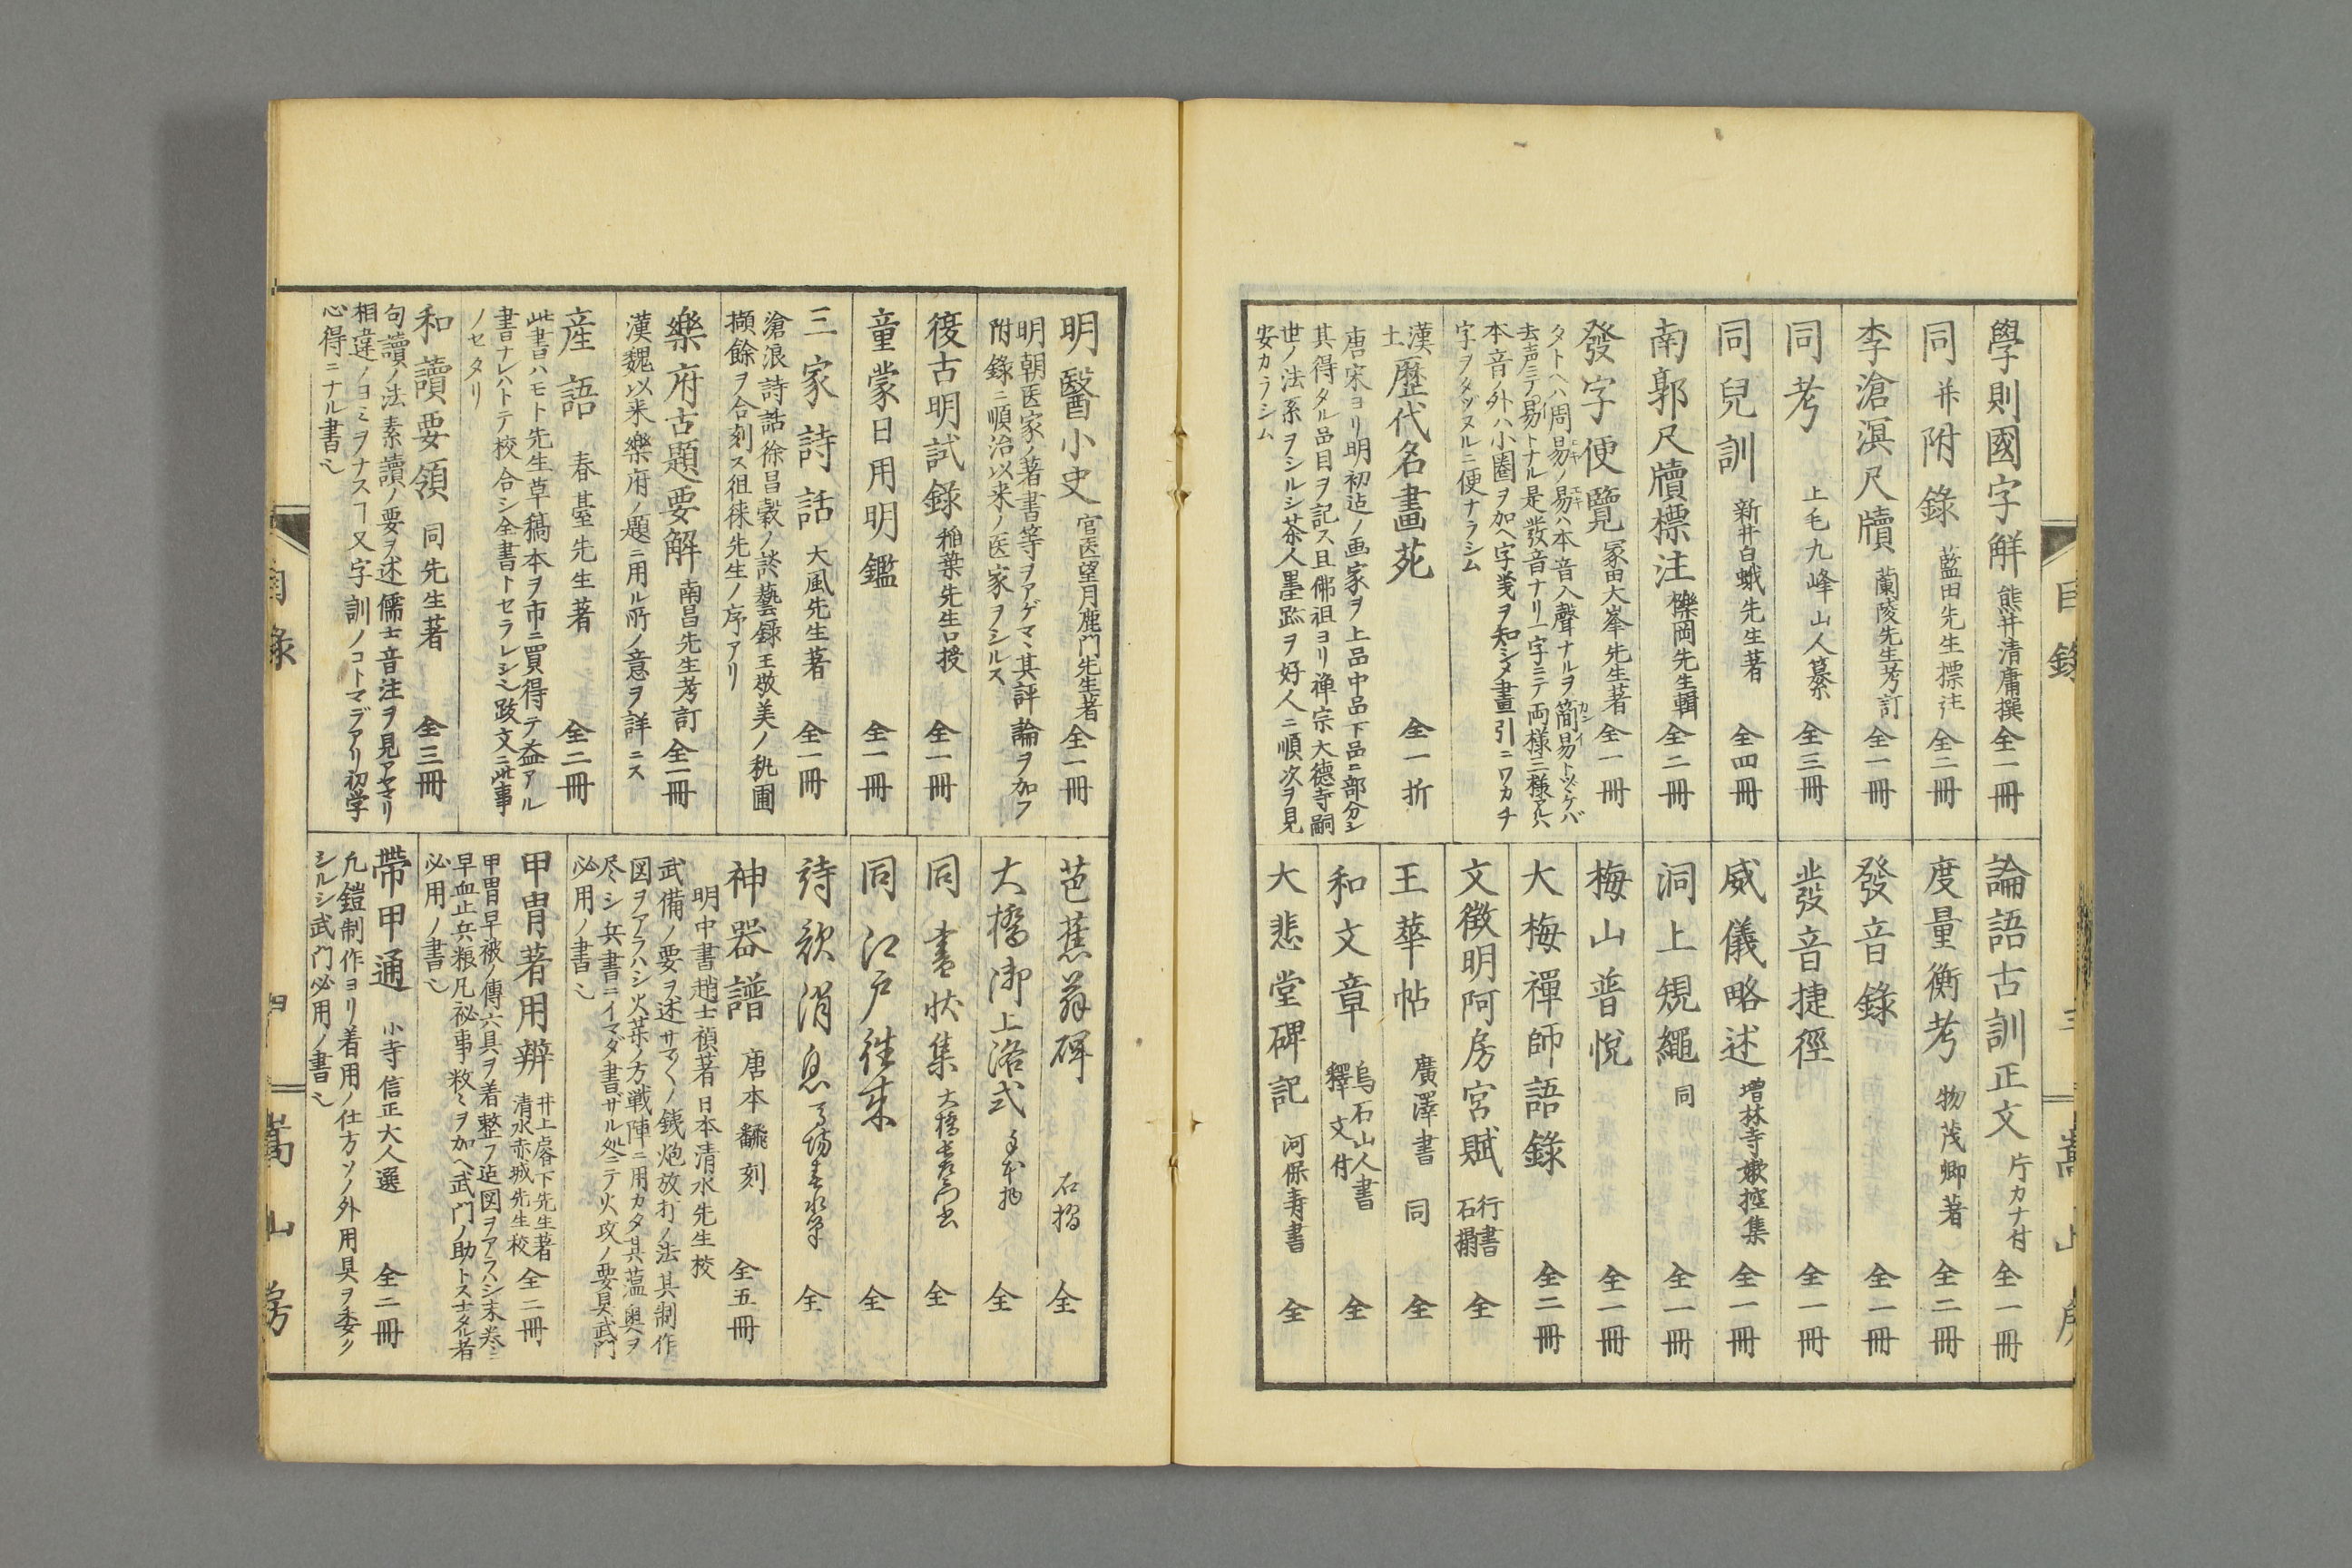 目錄 三 嵩山房
學則國字解 熊井清庸撰 全一冊
同并附錄 藍田先生標注 全二冊
李滄溟尺牘 蘭陵先生考訂 全一冊
同考 上毛九峰山人纂 全三冊
同兒訓 新井白蛾先生著 全四冊
南郭尺牘標注 先生輯 全二冊
發字便覽 冢田大峯先生著 全一冊
タトヘハ周易ノ易ハ本音入聲ナルヲ簡易トツヾケバ
去声ニテ易トナル是發音ナリ一字ニテ両様三様アルハ
本音ノ外ハ小圏ヲ加ヘ字義ヲ知シメ畫引ニワカチ
字ヲタヅヌルニ便ナラシム
漢土歷代名畫苑 全一折
唐宋ヨリ明初迄ノ画家ヲ上品中品下品ニ部分シ
其得タル品目ヲ記ス且佛祖ヨリ禅宗大德寺嗣
世ノ法系ヲシルシ茶人墨跡ヲ好人ニ順次ヲ見
安カラシム
論語古訓正文 片カナ付 全一冊
度量衡考 物茂卿著 全二冊
發音錄 全一冊
發音捷徑 全一冊
威儀略述 増林寺 集 全一冊
洞上規繩 同 全一冊
梅山普悅 全一冊
大梅禪師語錄 全二冊
文徴明阿房宮賦 行書石搨 全
王華帖 廣澤書 同 全
和文章 烏石山人書 釋文付 全
大悲堂碑記 河保寿書 全
明醫小史 官医望月鹿門先生著 全一冊
明朝医家ノ著書等ヲアゲマヽ其評論ヲ加フ
附錄ニ順治以来ノ医家ヲシルス
復古明試錄 稲葉先生口授 全一冊
童蒙日用明鑑 全一冊
三家詩話 大風先生著 全一冊
滄浪詩話徐昌穀ノ談藝錄王敬美ノ秇圃
擷餘ヲ合刻ス徂徠先生ノ序アリ
樂府古題要解 南昌先生考訂 全一冊
漢魏以来樂府ノ題ニ用ル所ノ意ヲ詳ニス
産語 春臺先生著 全二冊
此書ハモト先生草稿本ヲ市ニ買得テ益アル
書ナレハトテ校合シ全書トセラレシ也跋文ニ此事
ノセタリ
和讀要領 同先生著 全三冊
句讀ノ法素讀ノ要ヲ述儒士音注ヲ見アヤマリ
相違ノヨミヲナスヿ又字訓ノコトマデアリ初学
心得ニナル書也
芭蕉翁碑 石摺 全
大橋御上洛式 全
同書状集 全
同江戸往来 全
詩歌消息 全
神器譜 唐本飜刻 全五冊
明中書趙士禎著 日本清水先生校
武備ノ要ヲ述サマ〱ノ銕炮放打ノ法其制作
図ヲアラハシ火薬ノ方戦陣ニ用カタ其薀奥ヲ
尽シ兵書ニイマダ書ザル処ニテ火攻ノ要具武門
必用ノ書也
甲冑著用辨 井上 先生著 清水赤城先生校 全二冊
甲冑早被ノ傳六具ヲ着整フ迄図ヲアラハシ末巻ニ
早血止兵粮凡祕事数々ヲ加ヘ武門ノ助トス士タル者
必用ノ書也
帶甲通 小寺信正大人選 全二冊
凡鎧制作ヨリ着用ノ仕方ソノ外用具ヲ委ク
シルシ武門必用ノ書也
目錄 四 嵩山房